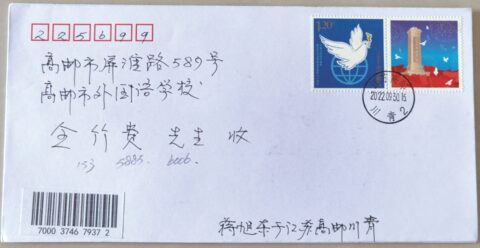 225699
1.20元
高邮市屏淮路589号
高邮市外国语学校
2022.09.30.16
川青2
金竹贵 先生 收
153 5885. 6006.
7000 3746 7937 2
蒋旭东于江苏高邮川青